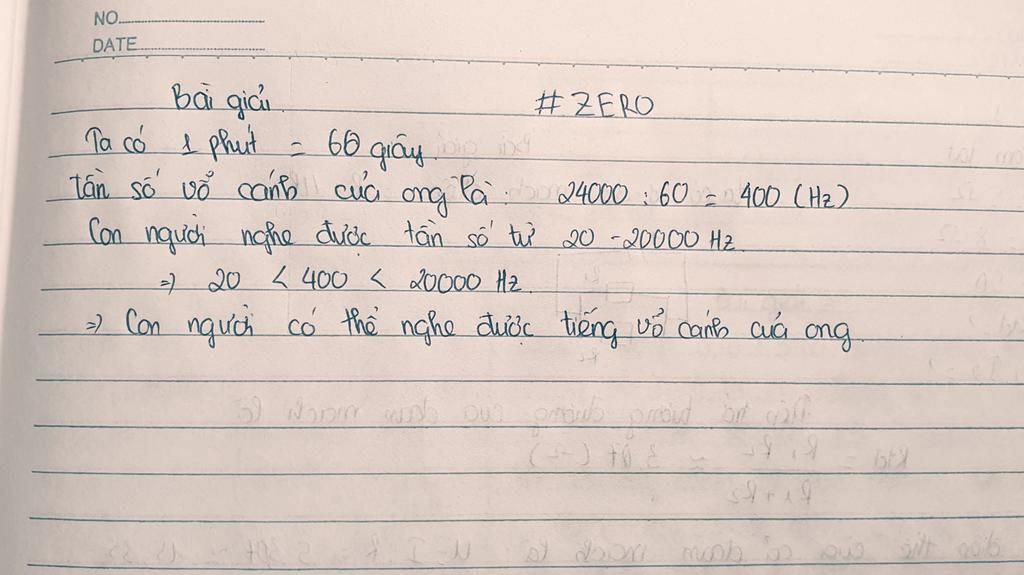 NO
DATE
Bài giải # ZERO
Ta có 1 phút = 60 giây.
tần số vỗ cánh của ong là: 24000 : 60 = 400 (Hz)
Con người nghe được tần số từ 20 - 20000 Hz.
=> 20 < 400 < 20000 Hz.
=> Con người có thể nghe được tiếng vỗ cánh của ong.